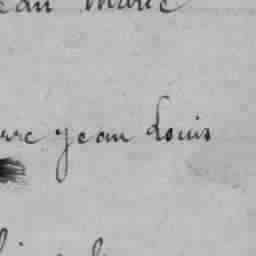 ean Marie
rre jean Louis